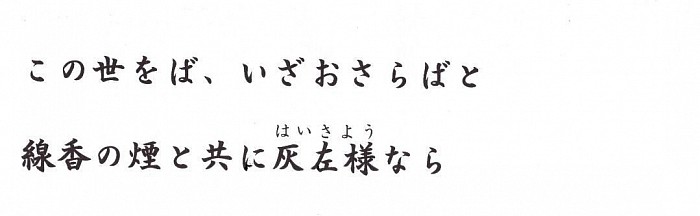 この世をば、いざおさらばと
はいさよう
線香の煙と共に灰左様なら